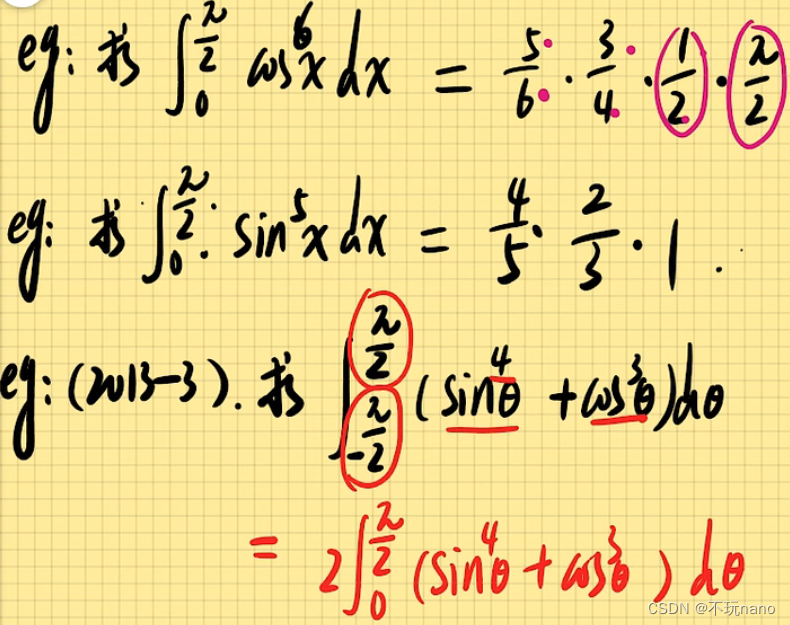 eg: 求 ∫₀^(π/2) cos⁶x dx = 5/6 · 3/4 · 1/2 · π/2
eg: 求 ∫₀^(π/2) sin⁵x dx = 4/5 · 2/3 · 1 .
eg: (2013-3). 求 ∫_(-π/2)^(π/2) (sin⁴θ + cos³θ)dθ
= 2∫₀^(π/2) (sin⁴θ + cos³θ) dθ
CSDN @不玩nano